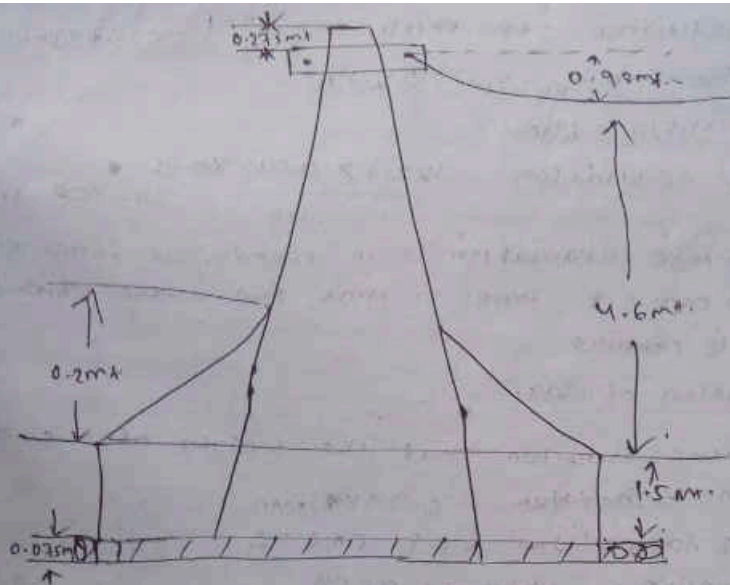 0.275mt
0.98mt.
4.6mt.
0.2mt
1.5mt.
0.075mt